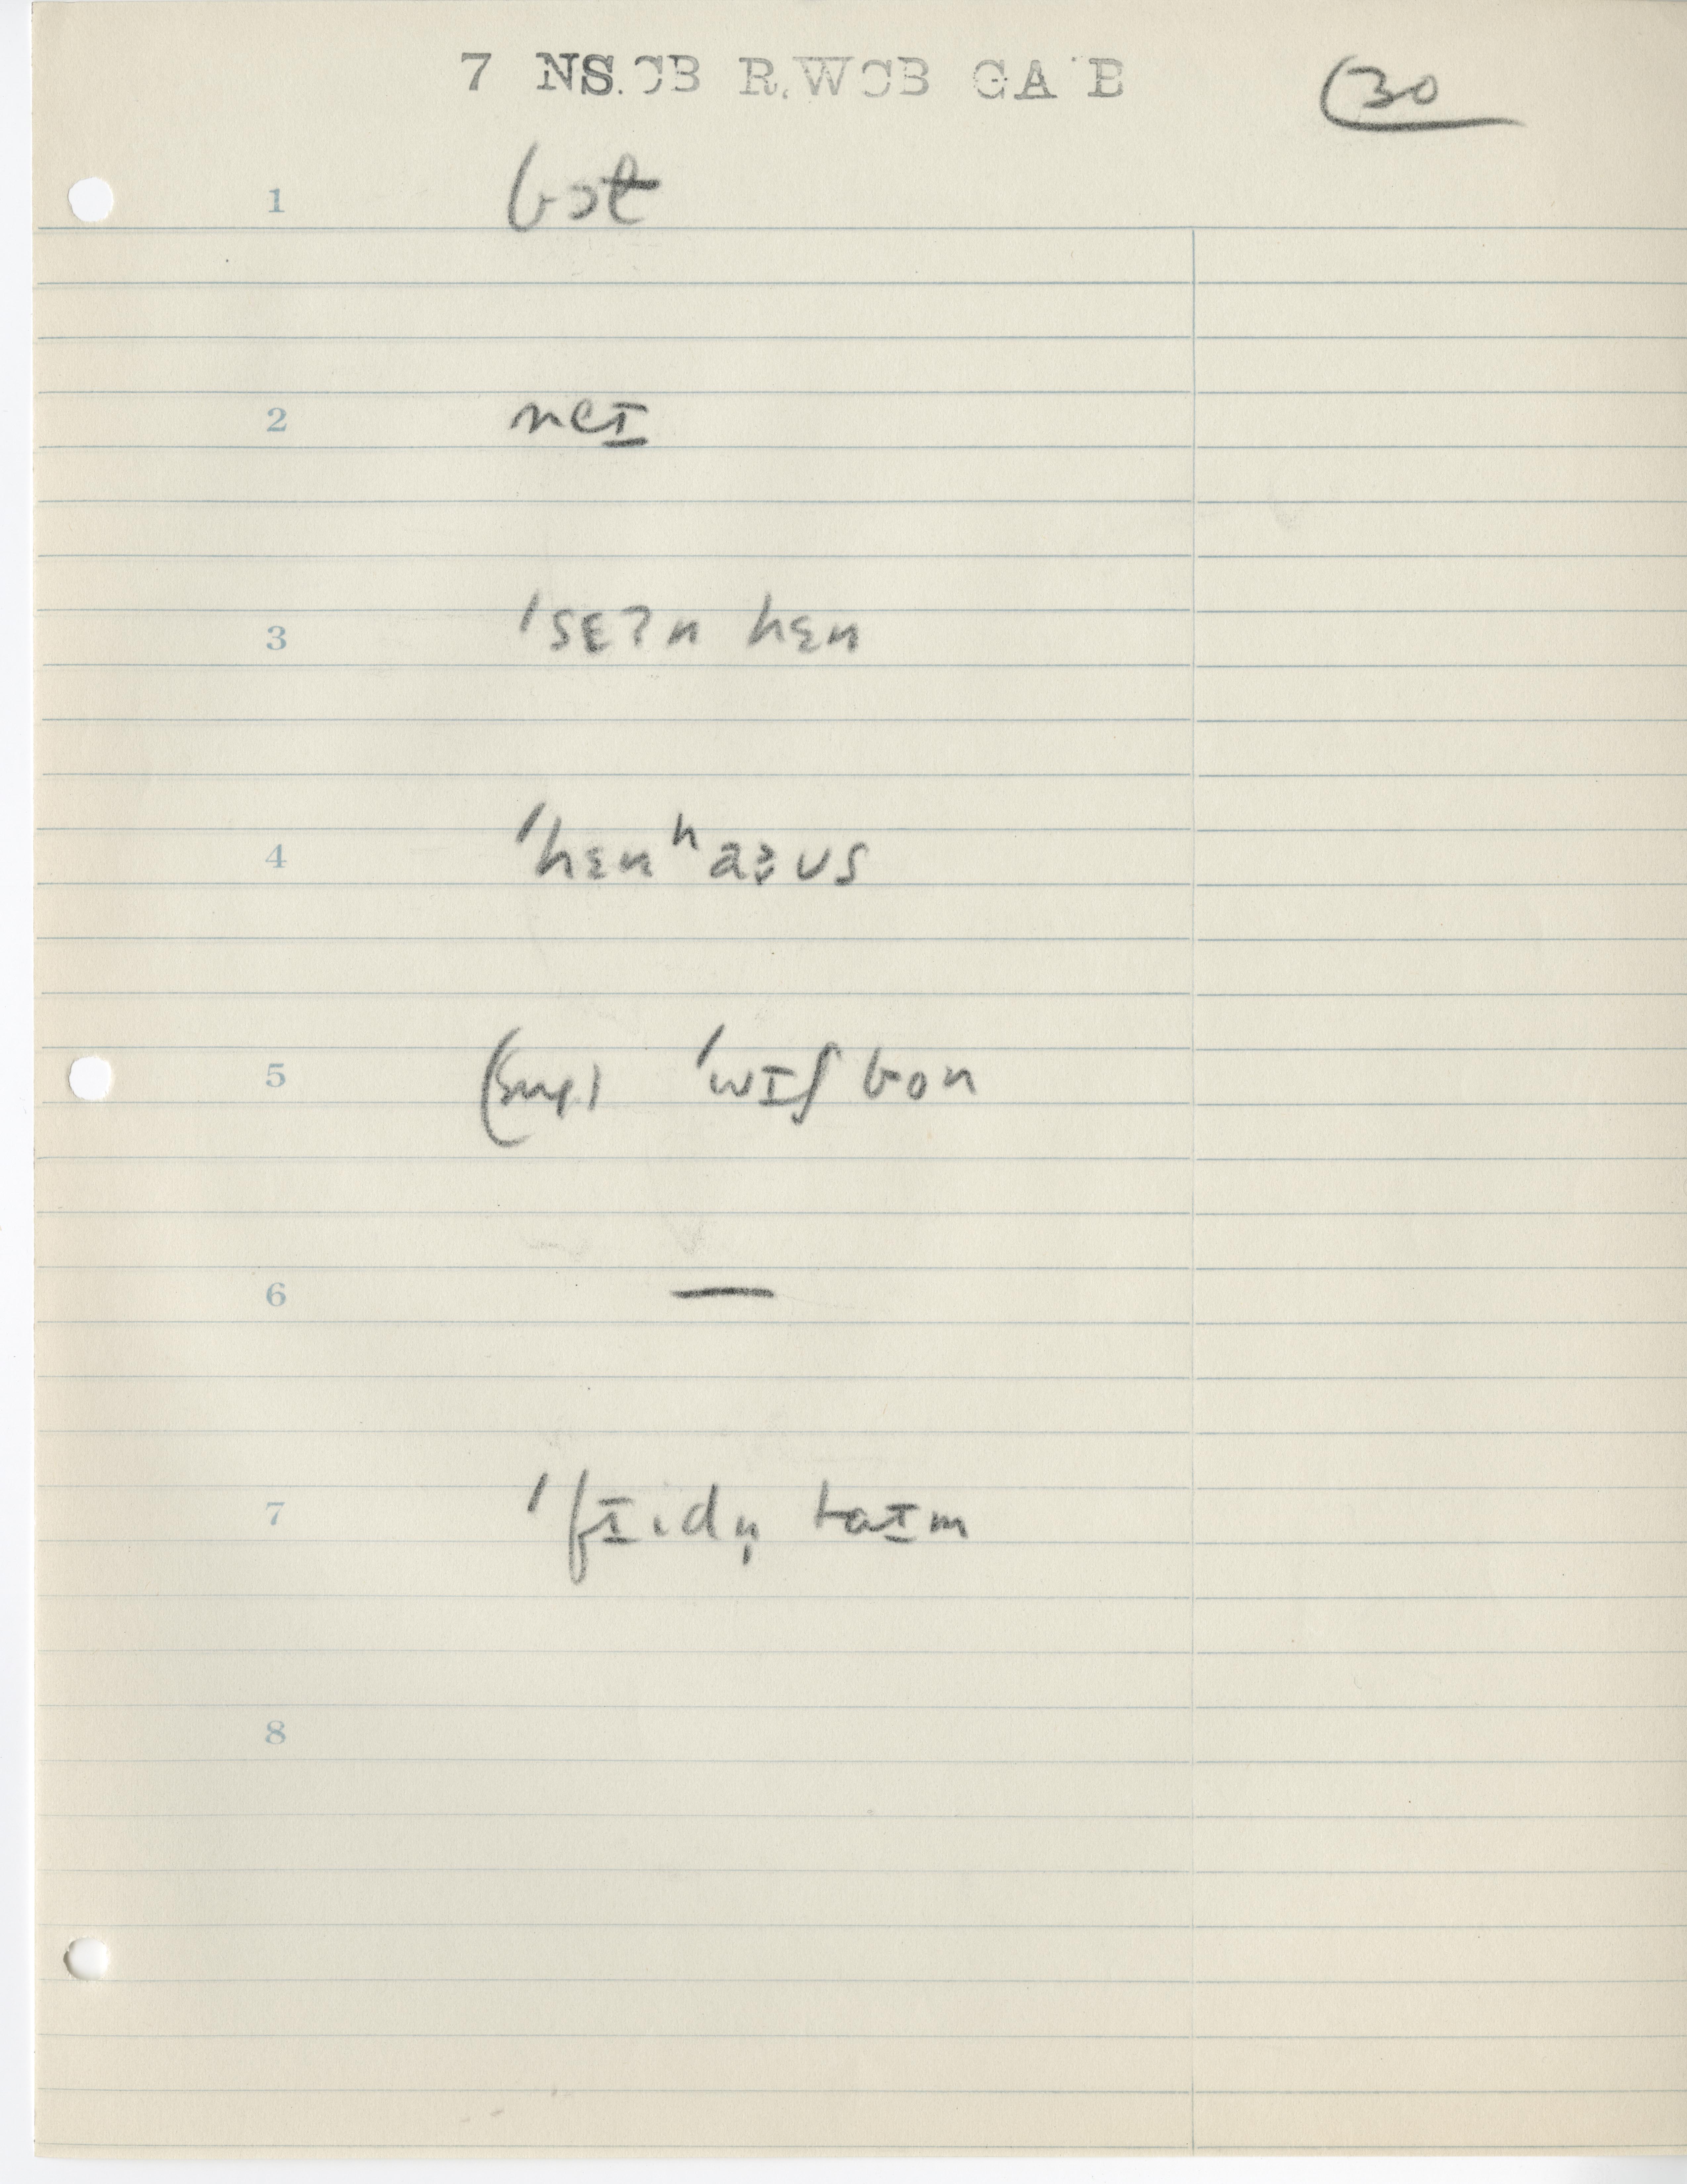 7 NS.CB R.WCB GA B
(30
1 bɔt
2 neɪ
3 ˈsɛʔn hɛn
4 ˈhɛn ʰaːʊs
5 (sug) ˈwɪʃ bon
6 —
7 ˈfɪidn̩ taɪm
8